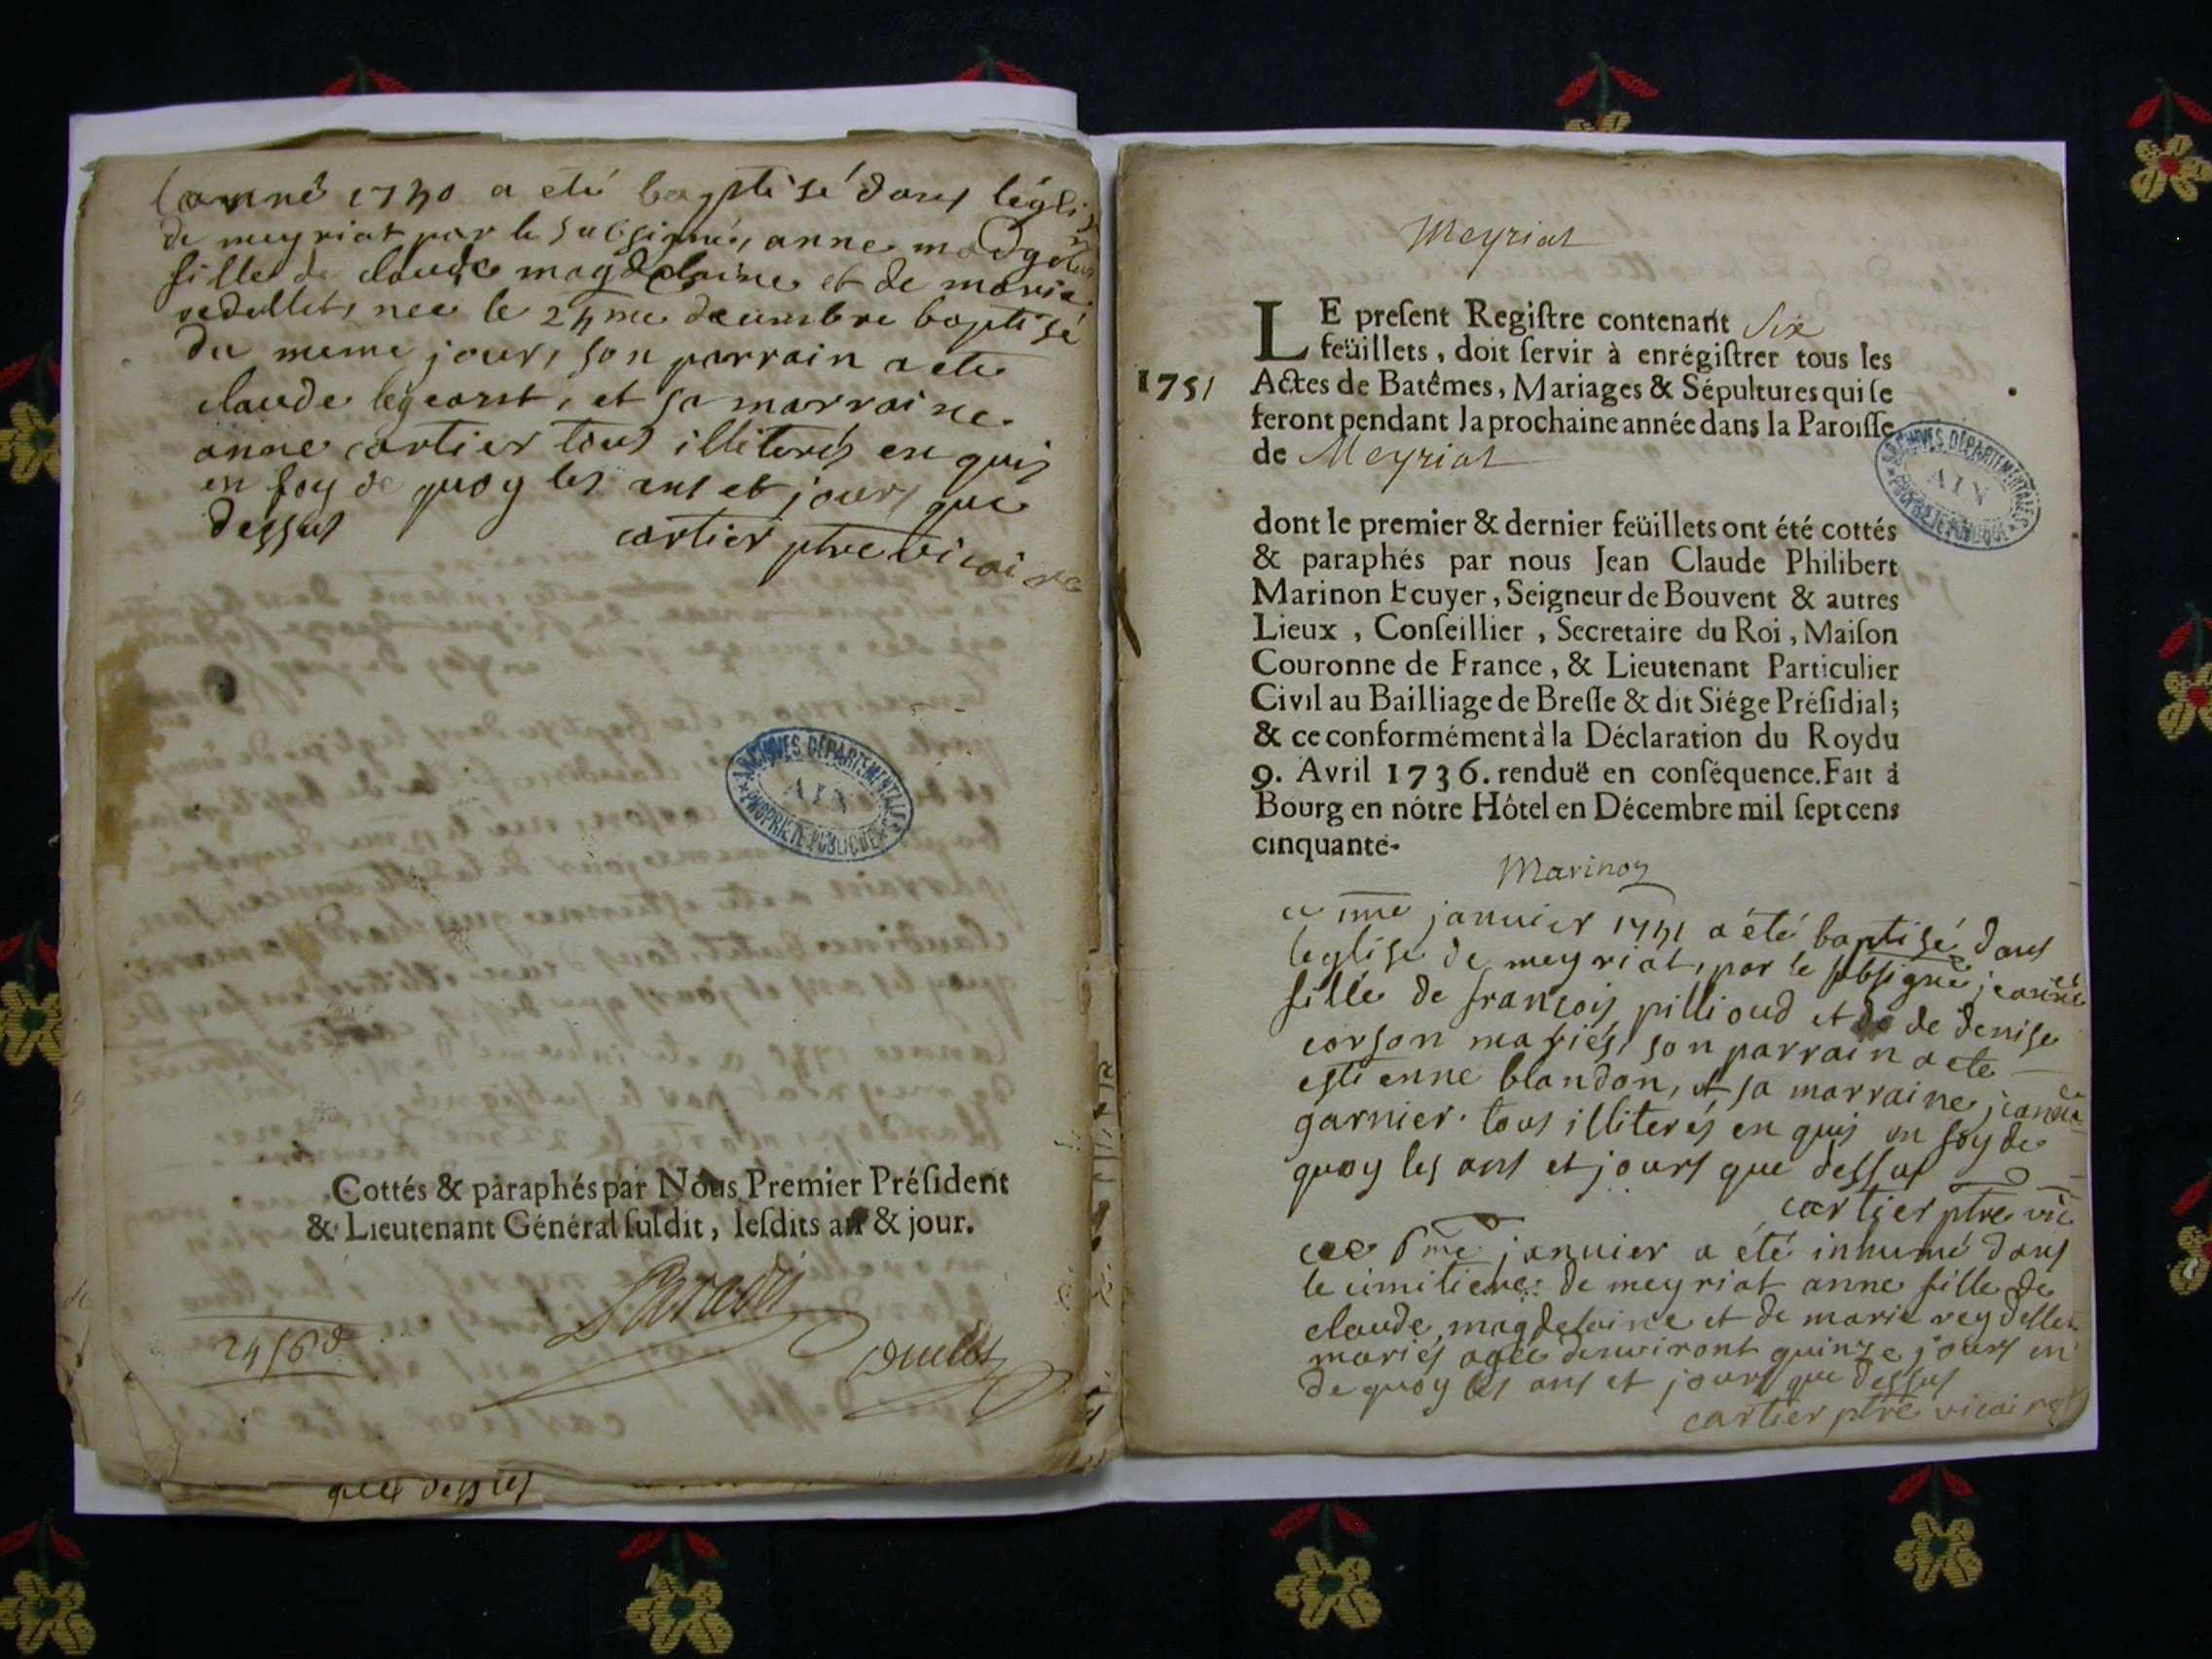 lanné 1750 a eté baptisé dans légli
de meyriat par le subsigné, anne
fille de claude magdelaine et de marie
redellet, nee le 25me decembre baptisé
du meme jour, son parrain a ete
claude legeant, et sa marraine
anne cartier tous illiterés en quis
en foy de quoy les ans et jours que
dessus
cartier ptre vicaire
ARCHIVES DÉPARTEMENTALES
AIN
PROPRIÉTÉ PUBLIQUE
Cottés & paraphés par Nous Premier Préſident
& Lieutenant Général ſuſdit, leſdits an & jour.
que dessus
Meyriat
LE preſent Regiſtre contenant Six
feüillets, doit ſervir à enrégiſtrer tous les
1751
Actes de Batêmes, Mariages & Sépultures qui ſe
feront pendant la prochaine année dans la Paroiſſe
de Meyriat
ARCHIVES DÉPARTEMENTALES
AIN
PROPRIÉTÉ PUBLIQUE
dont le premier & dernier feüillets ont été cottés
& paraphés par nous Jean Claude Philibert
Marinon Ecuyer, Seigneur de Bouvent & autres
Lieux, Conſeillier, Secretaire du Roi, Maiſon
Couronne de France, & Lieutenant Particulier
Civil au Bailliage de Breſſe & dit Siége Préſidial;
& ce conformément à la Déclaration du Roy du
9. Avril 1736. renduë en conſéquence. Fait à
Bourg en nôtre Hôtel en Décembre mil ſept cens
cinquante.
Marinon
ce 1me januier 1751 a été baptisé dans
leglise de meyriat, par le subsigné jeanne
fille de françois pillioud et de denise
corson mariés, son parrain a ete
estienne blandon, et sa marraine jeanne
garnier. tous illiterés en quis en foy de
quoy les ans et jours que dessus
cartier ptre vic
ce 6me januier a été inhumé dans
le cimitiere de meyriat anne fille de
claude magdelaine et de marie reydellet
mariés agée denuiront quinze jours en
de quoy les ans et jours que dessus
cartier ptre vicaire